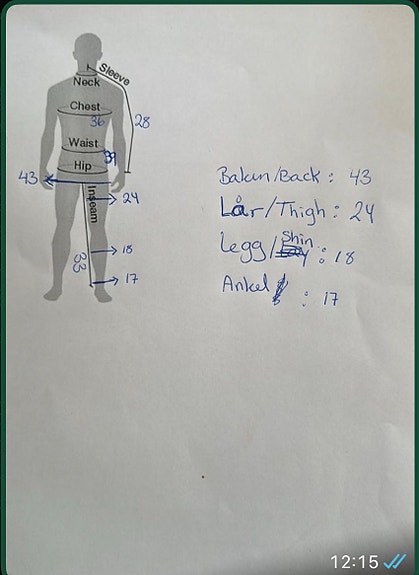 Sleeve
Neck
Chest
36
28
Waist
39
Hip
43
Inseam
24
18
33
17
Baken/Back : 43
Lår/Thigh : 24
Legg/Shin : 18
Ankel : 17
12:15